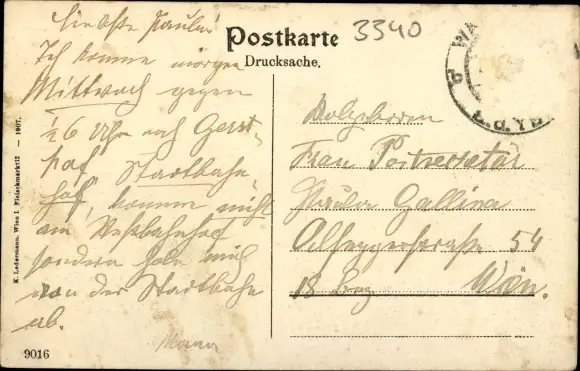 Liebste Paula!
Ich komme morgen
Mittwoch gegen
1/26 Uhr nach Gerst-
hof Stadtbahn-
hof, komme nicht
am Westbahnhof
sondern hole mich
von der Stadtbahn
ab.
Postkarte
Drucksache.
3340
WA
Frau
Paula Gallina
54
18 Bez Wien.
K. Ledermann, Wien I. Fleischmarkt12 — 1907.
9016